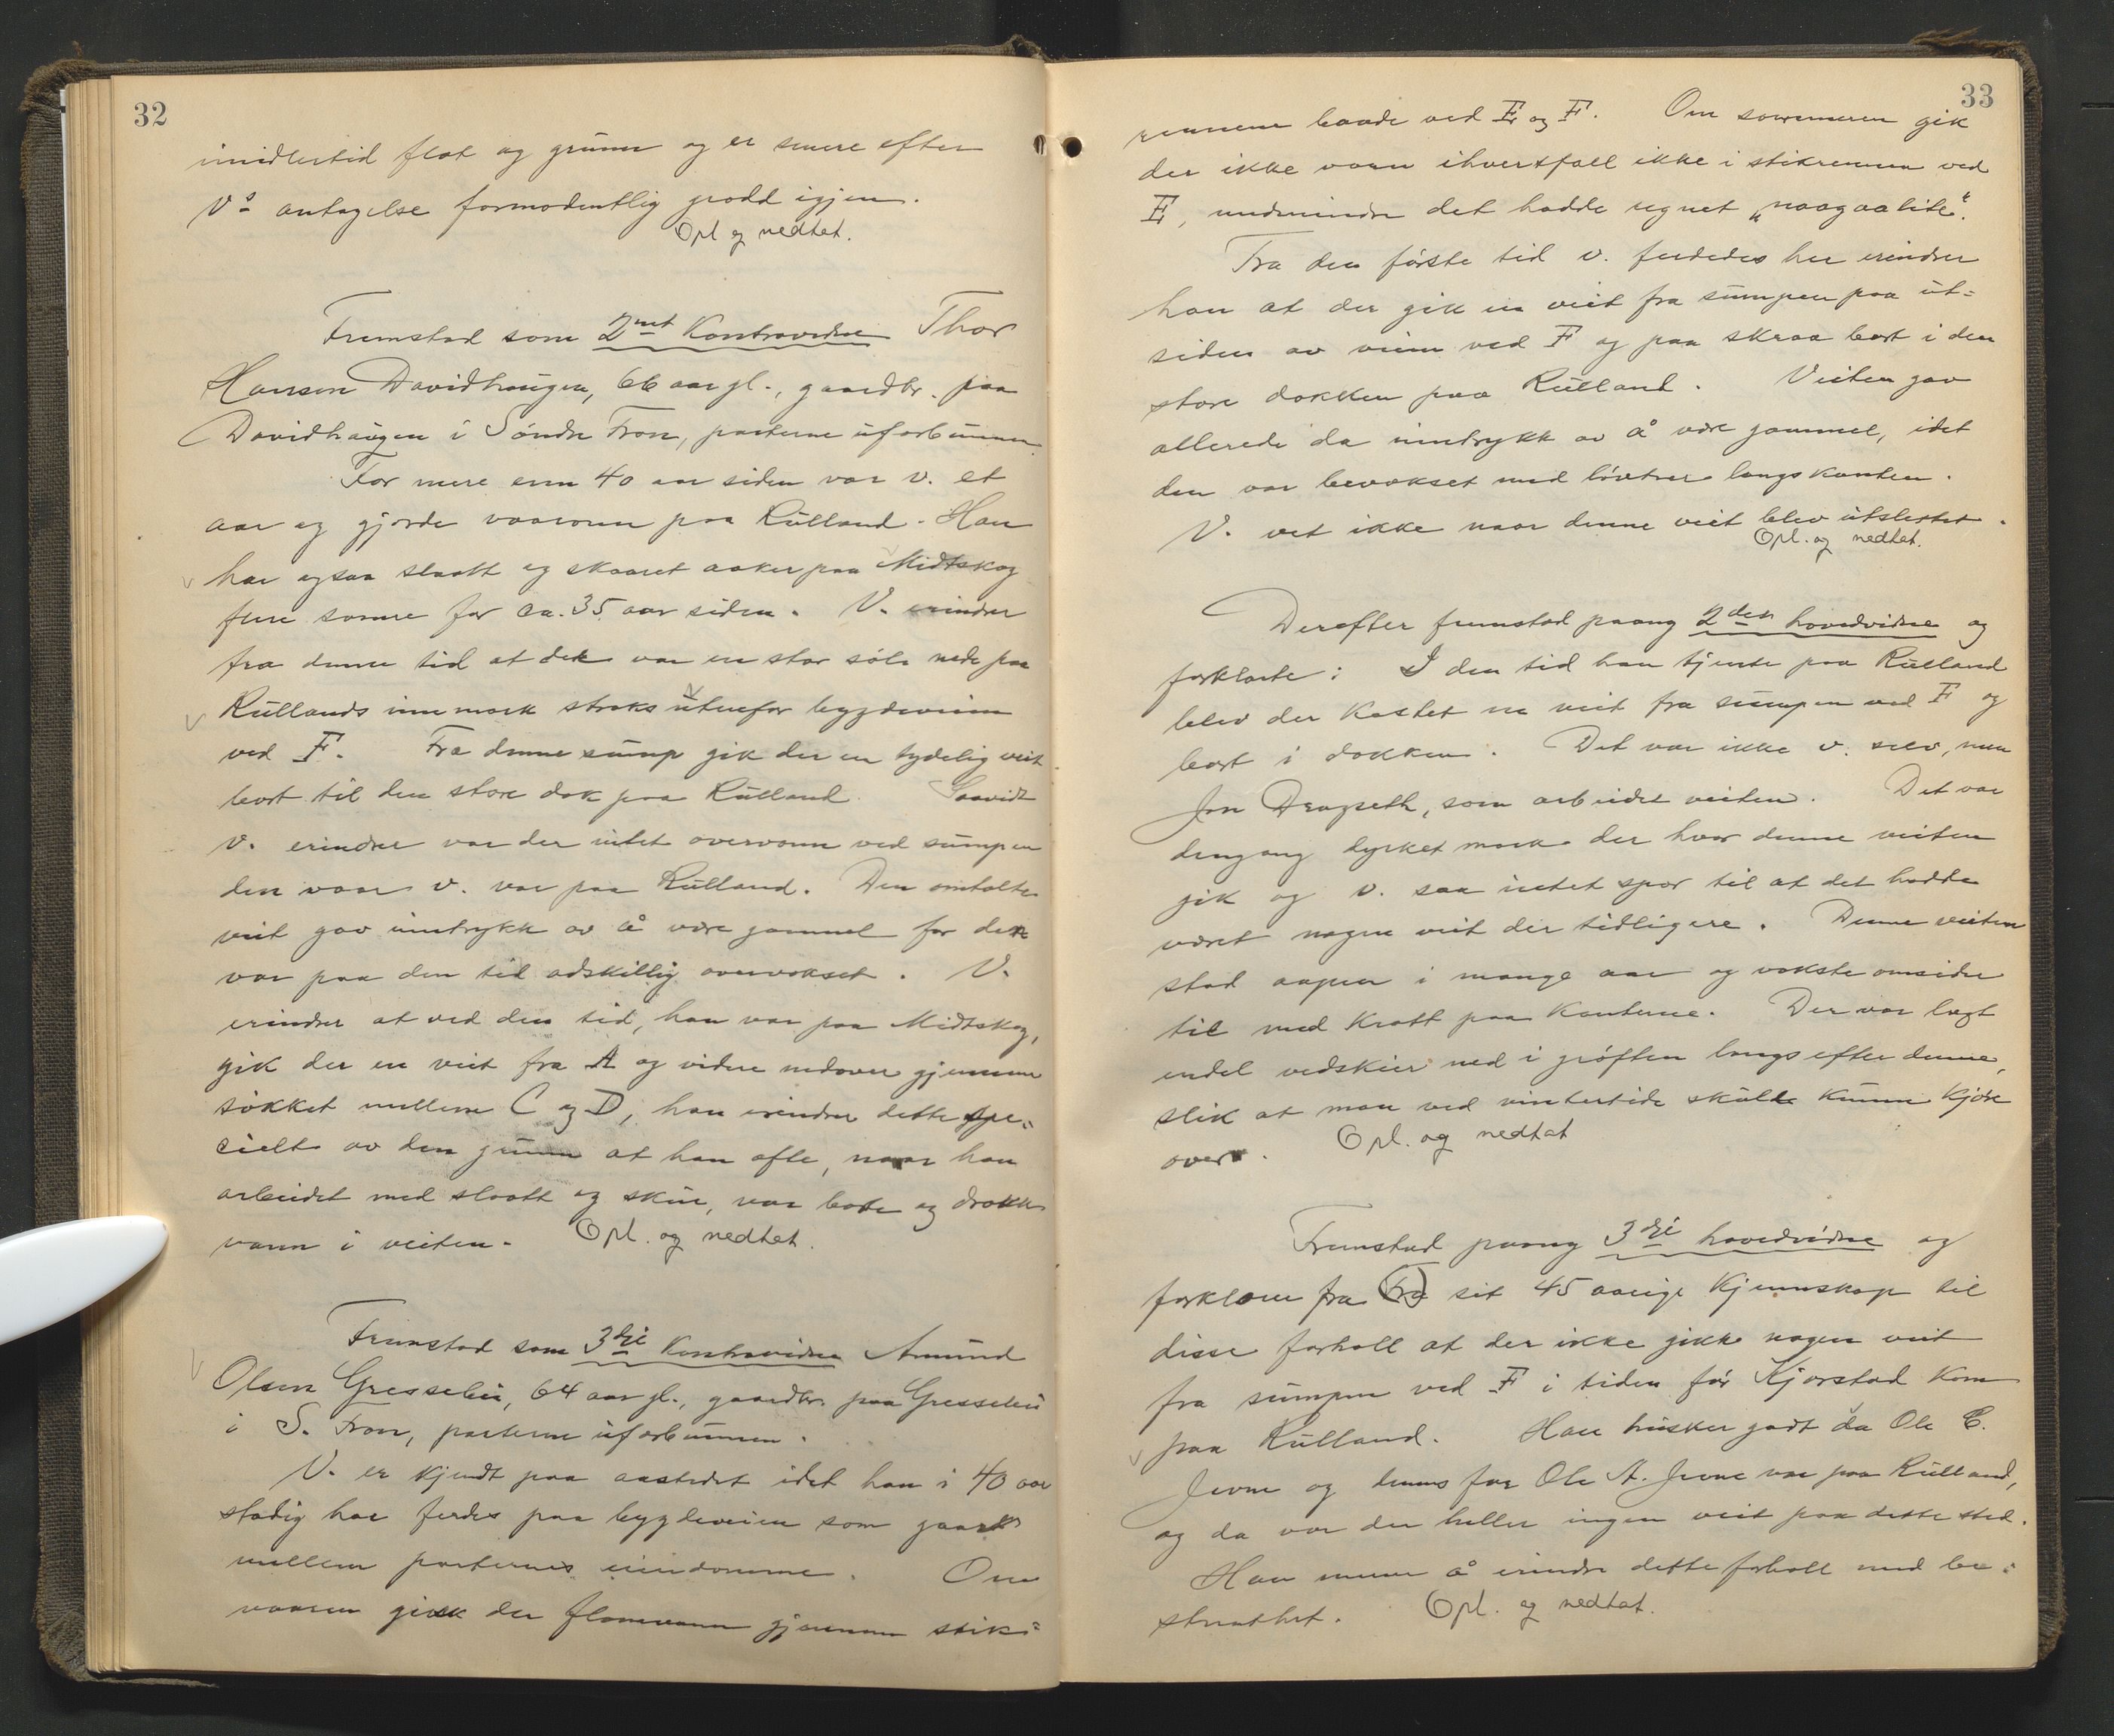 32
imidlertid flat og grunn og er senere efter
Vs antagelse formodentlig grodd igjen.
Opl og nedtat.
Fremstod som 2net Kontravidne Thor
Hansen Davidhaugen, 66 aar gl., gaardbr. paa
Davidhaugen i Söndre Fron, parterne uforbunnen.
For mere enn 40 aar siden var v. et
aar og gjorde vaaronn paa Rulland. Han
har ogsaa slaatt og skaaret aaker paa Midtskog
flere somre for ca. 35 aar siden. V. erindrer
fra denne tid at det var en stor söle nede paa
Rullands innmark straks utenfor bygdeveien
ved F. Fra denne sump gik der en tydelig veit
bort til den store dok paa Rulland. Saavidt
v. erindrer var der intet overvann ved sumpen
den vaar v. var paa Rulland. Den omtalte
veit gav inntrykk av å være gammel for den
var paa den tid adskillig overvokset. V.
erindrer at ved den tid, han var paa Midtskog,
gik der en veit fra A og videre nedover gjennem
sökket mellem C og D, han erindrer dette spe-
cielt av den grunn at han ofte, naar han
arbeidet med slaatt og skur, var borte og drakk
vann i veiten. Opl. og nedtat.
Fremstod som 3die Kontravidne Amund
Olsen Gresselien, 64 aar gl., gaardbr. paa Gresselien
i S. Fron, parterne uforbunnen.
V. er kjendt paa aastedet idet han i 40 aar
stadig har ferdes paa bygdeveien som gaar
mellem parternes eiendomme. Om
vaaren gik der flomvann gjennem stik-
33
rennene baade ved E og F. Om sommeren gik
der ikke vann ihvertfall ikke i stikrennen ved
E, undtmindre det hadde regnet „naagaalite".
Fra den förste tid v. ferdedes her erindrer
han at der gik en veit fra sumpen paa ut-
siden av veien ved F og paa skraa bort i den
store dokken paa Rulland. Veiten gav
allerede da inntrykk av å være gammel, idet
den var bevokset med lövtrær langs kanten.
V. vet ikke naar denne veit blev utslettet.
Opl. og nedtat.
Derefter fremstod paany 2den hovedvidne og
forklarte: I den tid han tjente paa Rulland
blev der kastet en veit fra sumpen ved F og
bort i dokken. Det var ikke v. selv, men
Jon Dragseth, som arbeidet veiten. Det var
dengang dyrket mark der hvor denne veiten
gik og v. saa intet spor til at det hadde
været nogen veit der tidligere. Denne veiten
stod aapen i mange aar og vokste omsider
til med kratt paa kanterne. Der var lagt
endel vedskier ned i gröften langs efter denne,
slik at man ved vintertide skulde kunne kjöre
over. Opl. og nedtat
Fremstod paany 3die hovedvidne og
forklarer fra (Fra) sit 45 aarige kjennskap til
disse forhold at der ikke gikk nogen veit
fra sumpen ved F i tiden för Kjorstad kom
paa Rulland. Han husker godt da Ole C.
Jevne og dennes far Ole A. Jevne var paa Rulland,
og da var der heller ingen veit paa dette sted.
Han mener å erindre dette forhold med be-
stemthet. Opl. og nedtat.